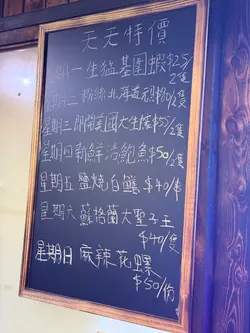 天天特價
星期一生猛基圍蝦$25/2隻
星期二粉絲北海道元貝$50/2隻
星期三即開美國大生蠔$15/2隻
星期四新鮮活鮑魚$50/2隻
星期五鹽燒白鱔$40/
星期六蘇格蘭大聖子王
$40/隻
星期日麻辣花螺
$50/份